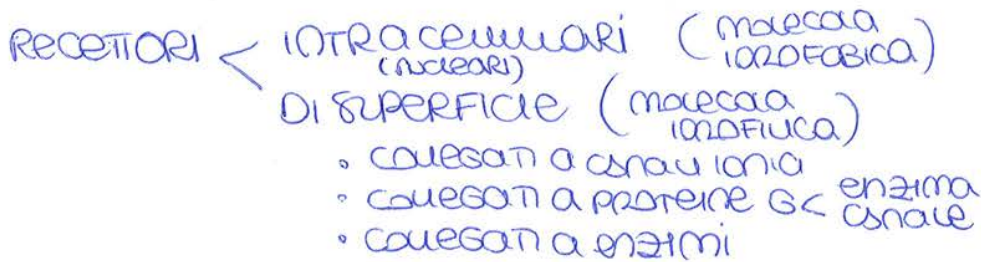 RECETTORI < INTRACELLULARI (MOLECOLA
IDROFOBICA)
(NUCLEARI)
DI SUPERFICIE (MOLECOLA
IDROFILICA)
• COLLEGATI A CANALI IONICI
• COLLEGATI A PROTEINE G < ENZIMA
CANALE
• COLLEGATI A ENZIMI